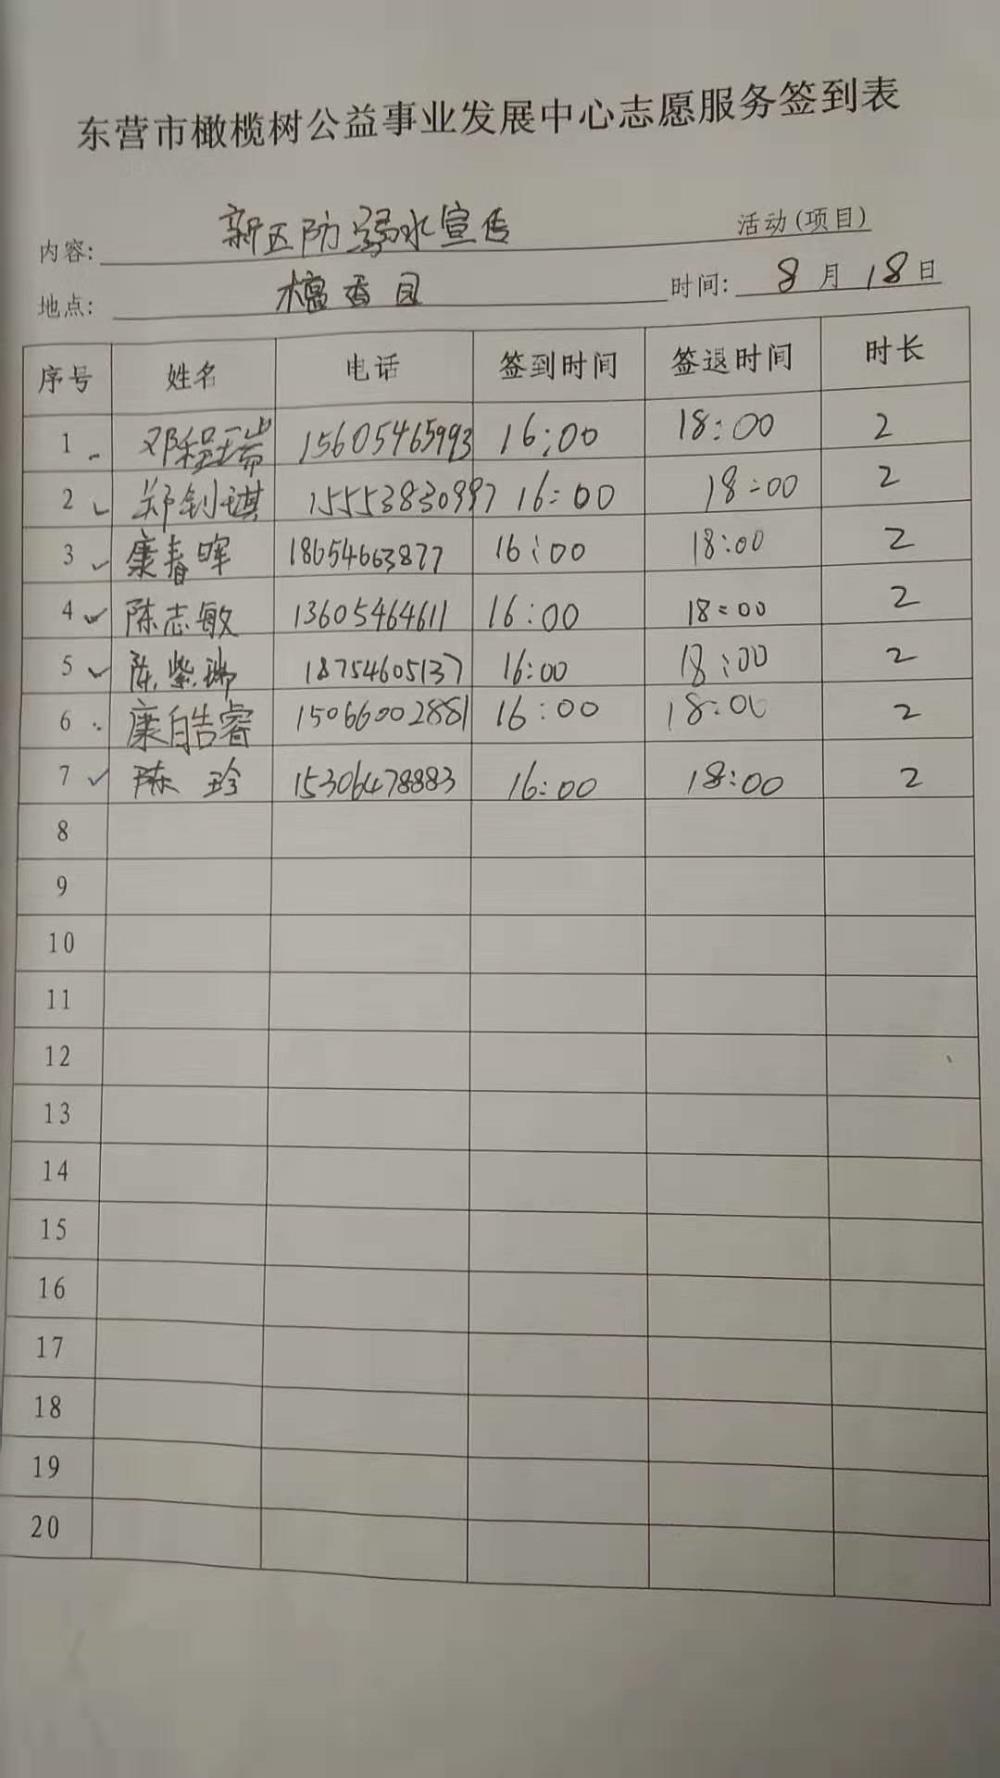 东营市橄榄树公益事业发展中心志愿服务签到表
内容: 新区防溺水宣传 活动(项目)
地点: 檀香园 时间: 8月18日
序号 姓名 电话 签到时间 签退时间 时长
1 邓程瑞 15605465993 16:00 18:00 2
2 郑钊琪 15553830997 16:00 18:00 2
3 康春晖 18654663877 16:00 18:00 2
4 陈志敏 13605464611 16:00 18:00 2
5 陈紫瑞 18754605137 16:00 18:00 2
6 康皓睿 15066002881 16:00 18:00 2
7 陈珍 15306478883 16:00 18:00 2
8
9
10
11
12
13
14
15
16
17
18
19
20